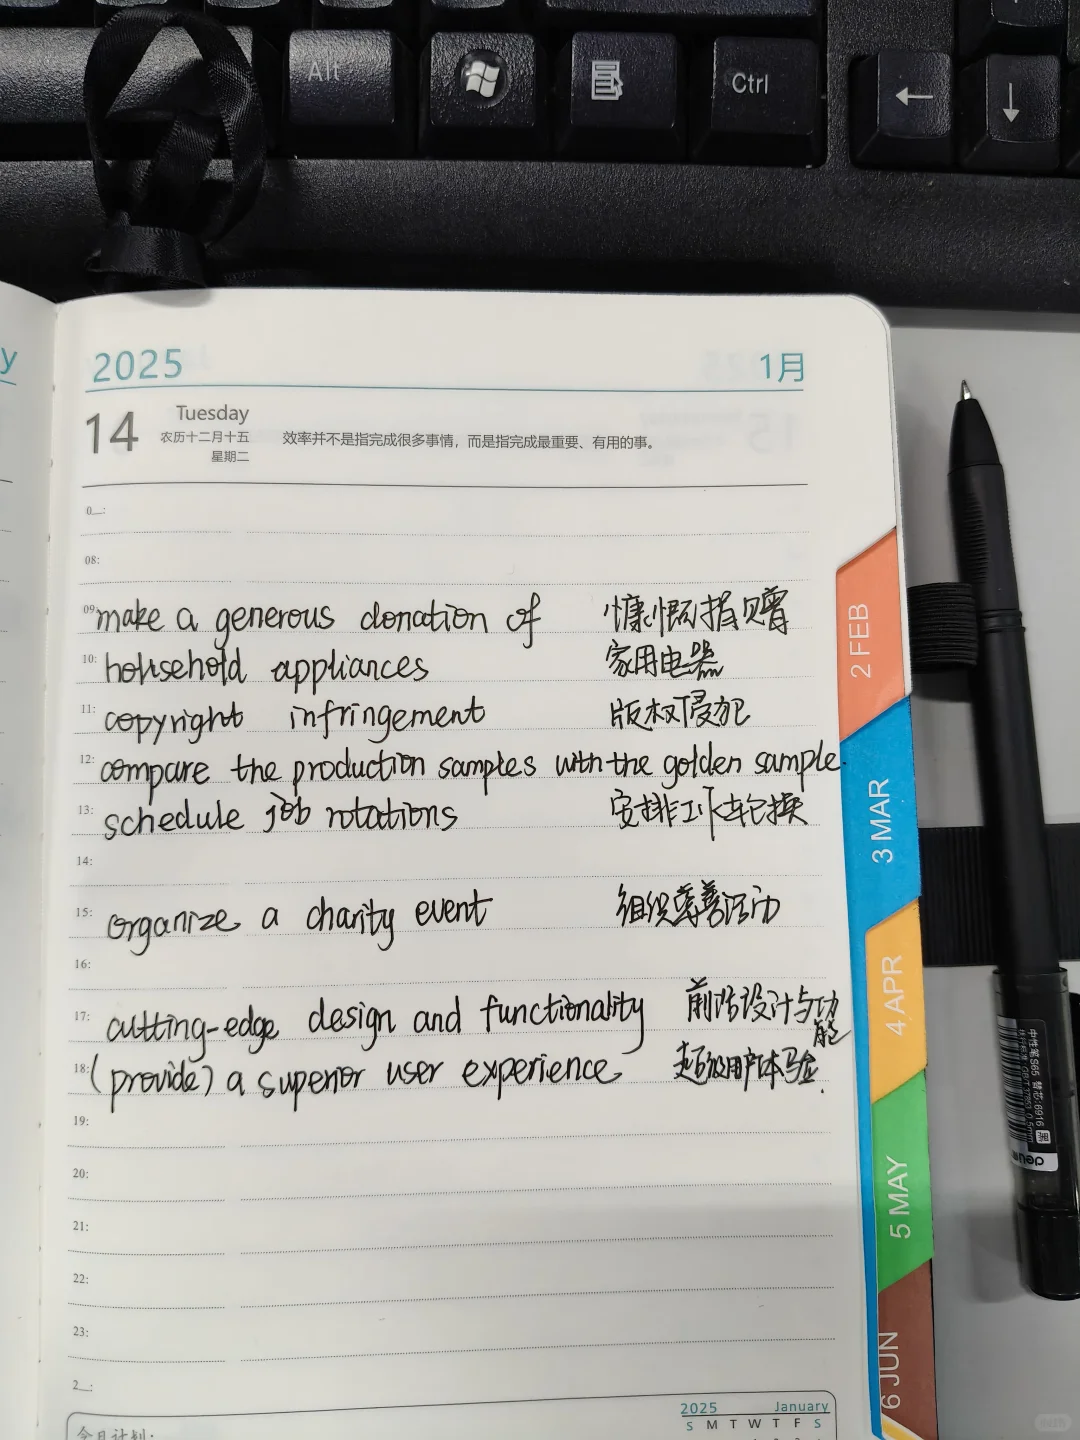 Alt
Ctrl
y
2025 1月
14 Tuesday
农历十二月十五
星期二
效率并不是指完成很多事情，而是指完成最重要、有用的事。
0__:
08:
09: make a generous donation of 慷慨捐赠
10: household appliances 家用电器
11: copyright infringement 版权侵犯
12: compare the production samples with the golden sample.
13: schedule job rotations 安排工作轮换
14:
15: organize a charity event 组织慈善活动
16:
17: cutting-edge design and functionality 前沿设计与功能
18: (provide) a superior user experience 超级用户体验.
19:
20:
21:
22:
23:
2__:
今日计划:
2025 January
S M T W T F S
2 FEB
3 MAR
4 APR
5 MAY
6 JUN
中性笔S65 替芯:6916 黑
0.5mm
deli